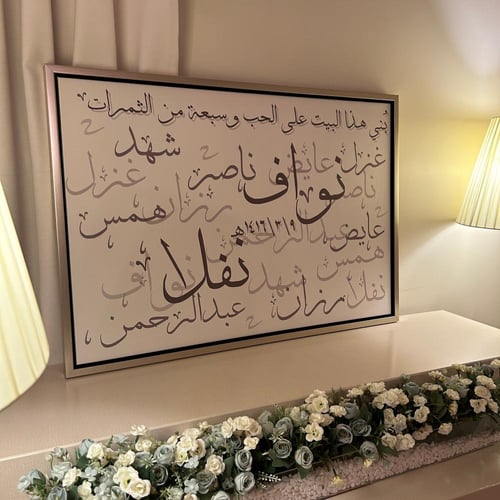 بُني هذا البيت على الحب وسبعة من الثمرات
شهد
غزل عايض ناصر غزل
نواف ناصر
رزان همس
عايض عبدالرحمن
١٤١٦/٣/٩هـ
همس
نفلا شهد نواف
نفلا رزان
عبدالرحمن